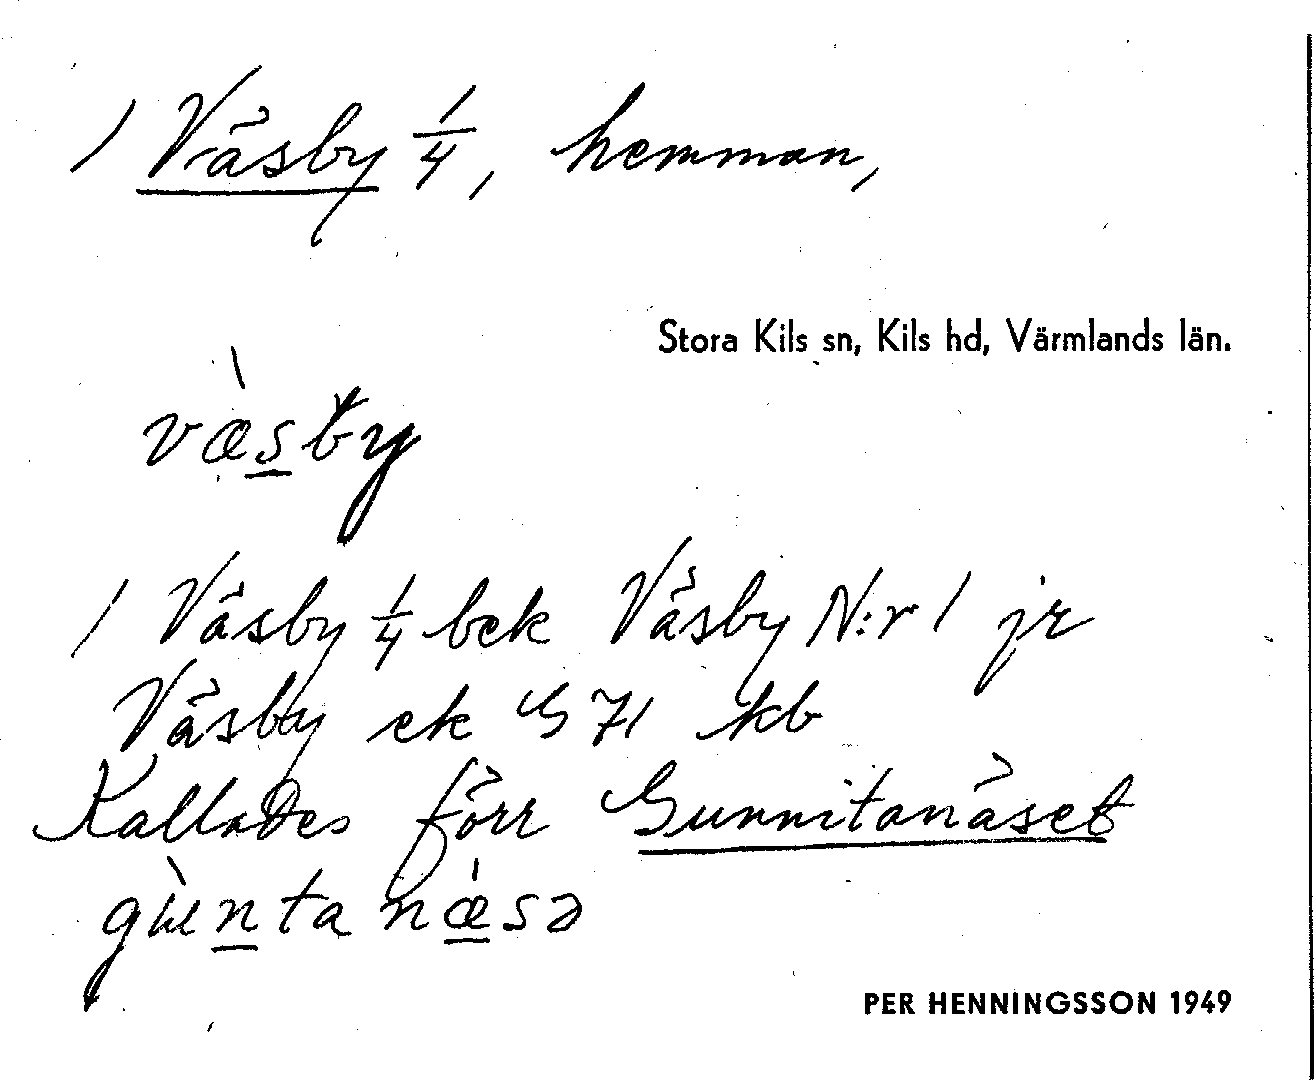 1 Väsby 1/4, hemman,
Stora Kils sn, Kils hd, Värmlands län.
væ̀sby
1 Väsby 1/4 bek Väsby N:r 1 jr
Väsby ek G 71 kb
Kallades förr Gunnitanäset
PER HENNINGSSON 1949